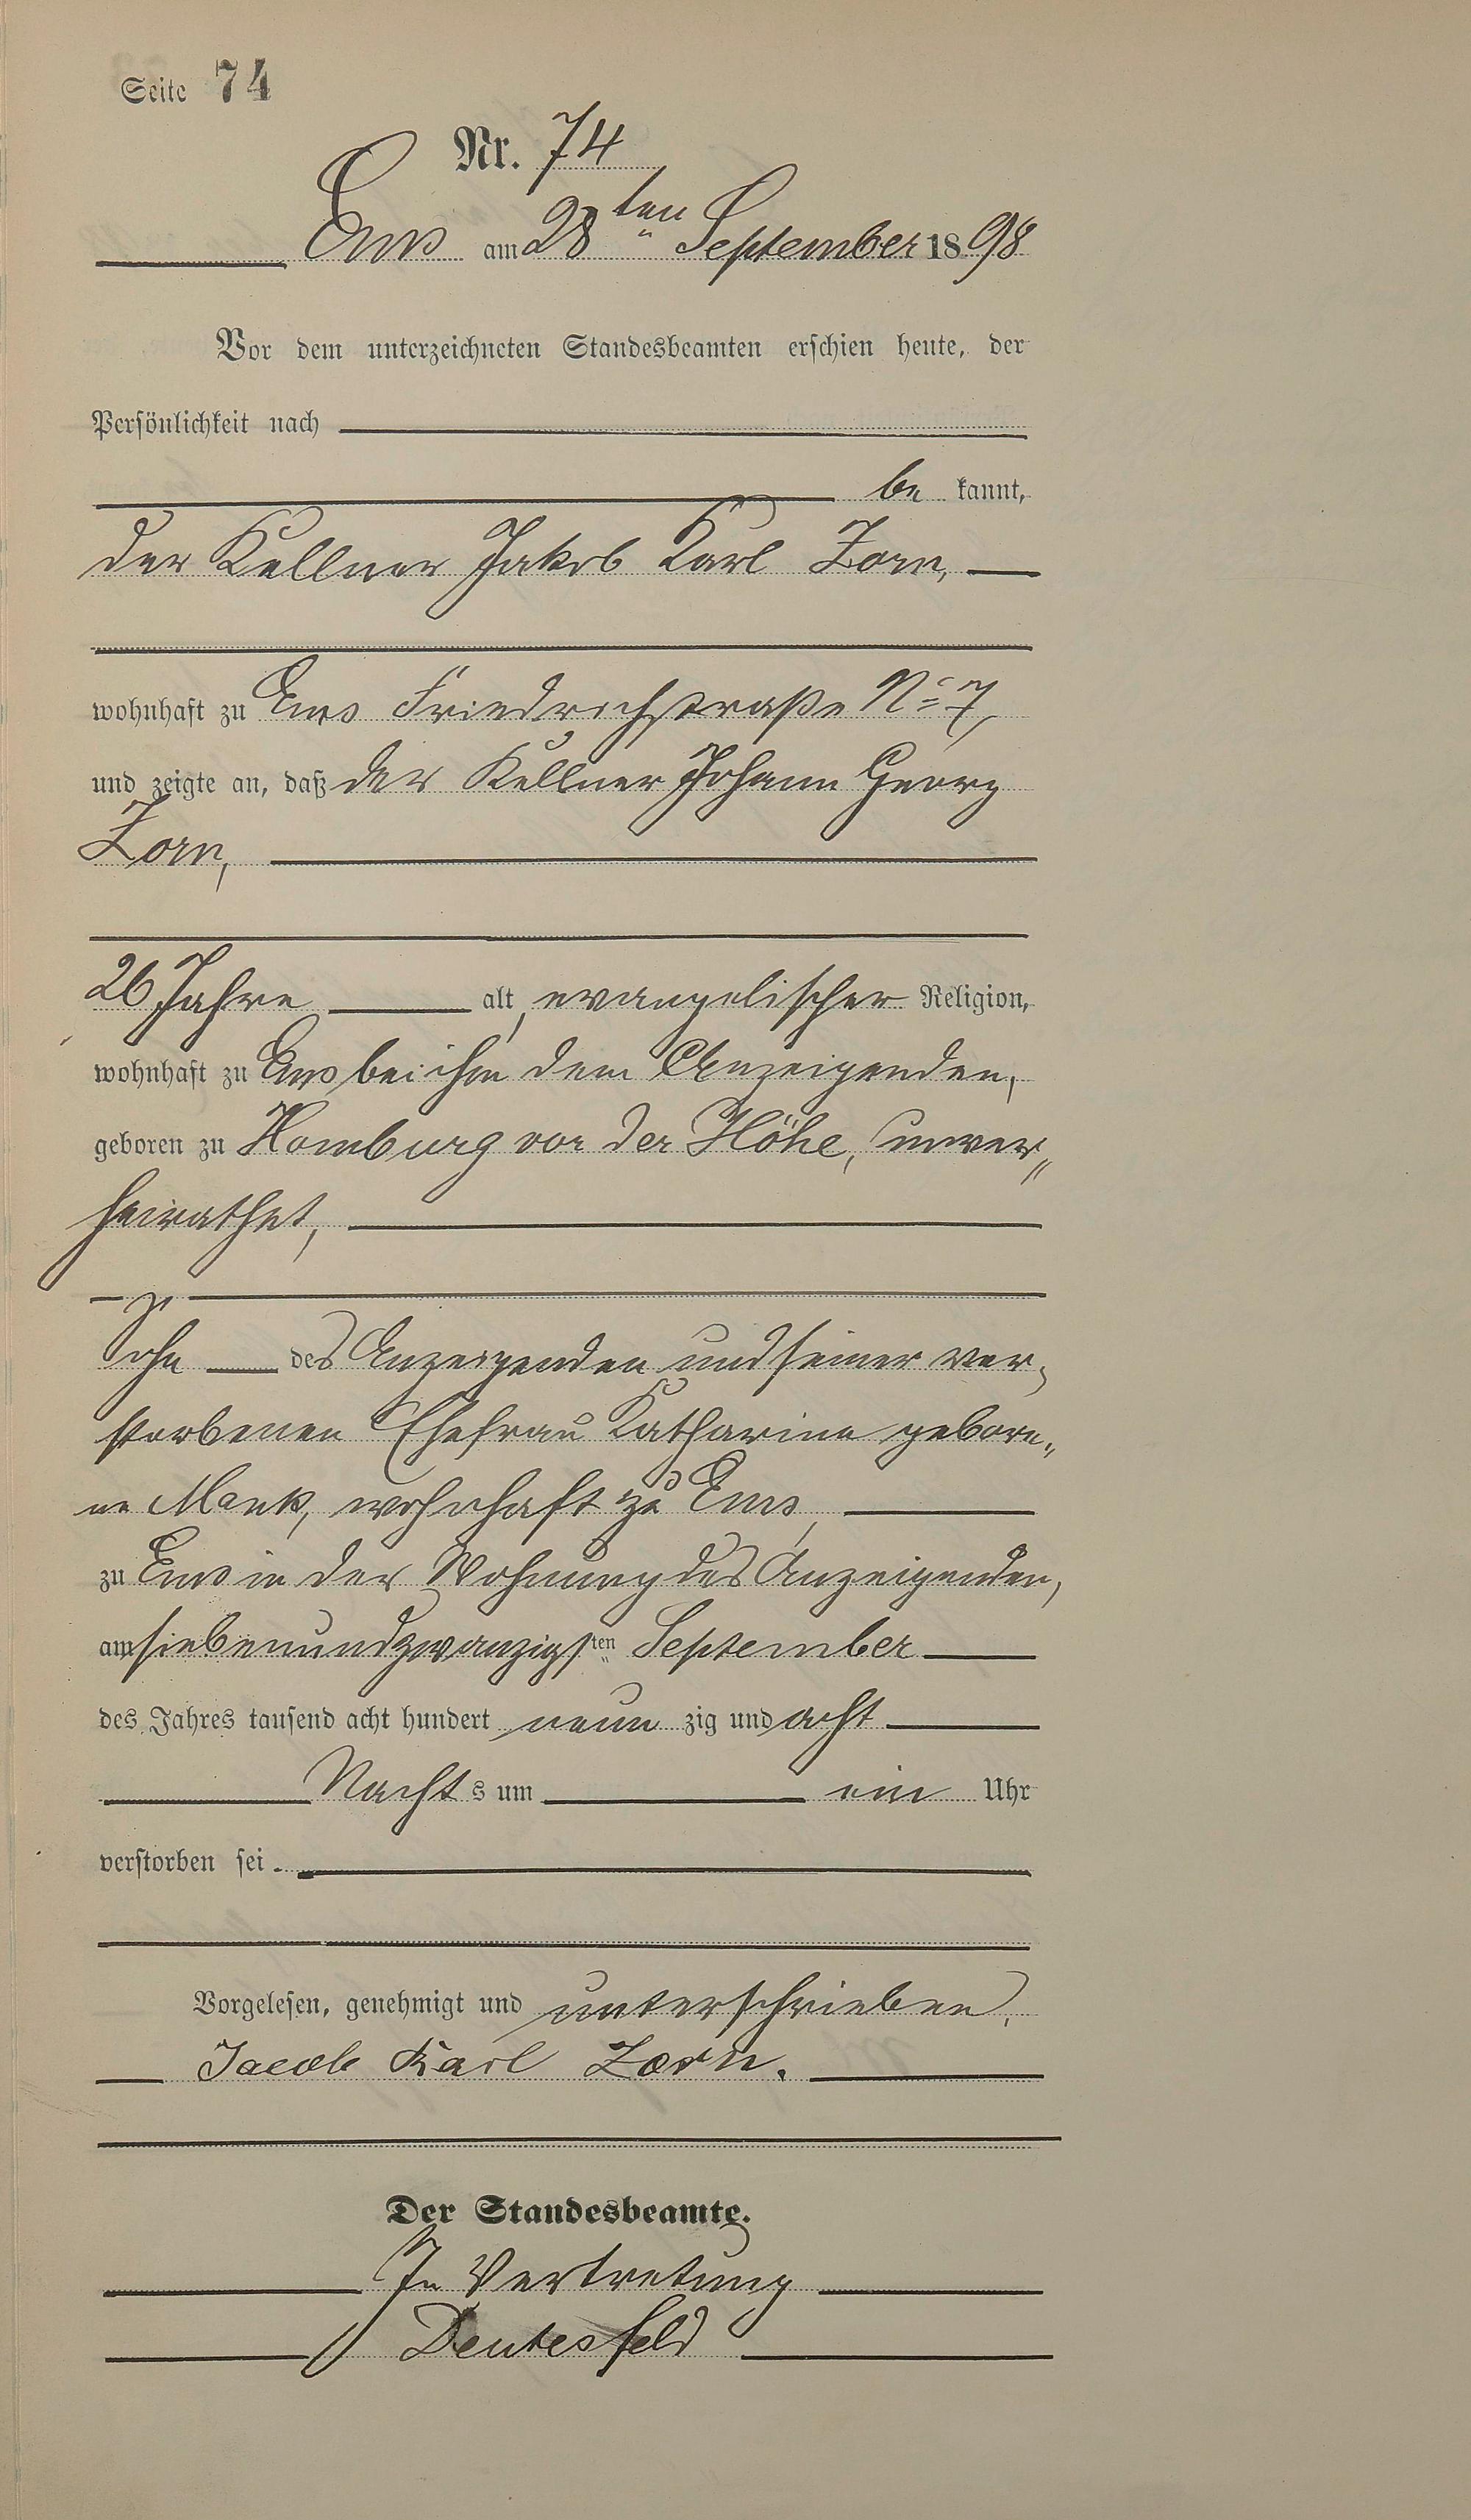 Seite 74
Nr. 74
Ems am 28ten September 1898
Vor dem unterzeichneten Standesbeamten erschien heute, der
Persönlichkeit nach
be kannt,
der Kellner Jakob Karl Zorn,
wohnhaft zu Ems Friedrichstraße No 7,
und zeigte an, daß der Kellner Johann Georg
Zorn,
26 Jahre alt, evangelischer Religion,
wohnhaft zu Ems bei ihm dem Anzeigenden,
geboren zu Homburg vor der Höhe, unver„
heirathet,
Sohn des Anzeigenden und seiner ver„
storbenen Ehefrau Katharina gebore„
ne Mank, wohnhaft zu Ems,
zu Ems in der Wohnung des Anzeigenden,
am siebenundzwanzigsten September
des Jahres tausend acht hundert neun zig und acht
Nacht s um ein Uhr
verstorben sei.
Vorgelesen, genehmigt und unterschrieben.
Jacob Karl Zorn.
Der Standesbeamte.
In Vertretung
Deutesfeld